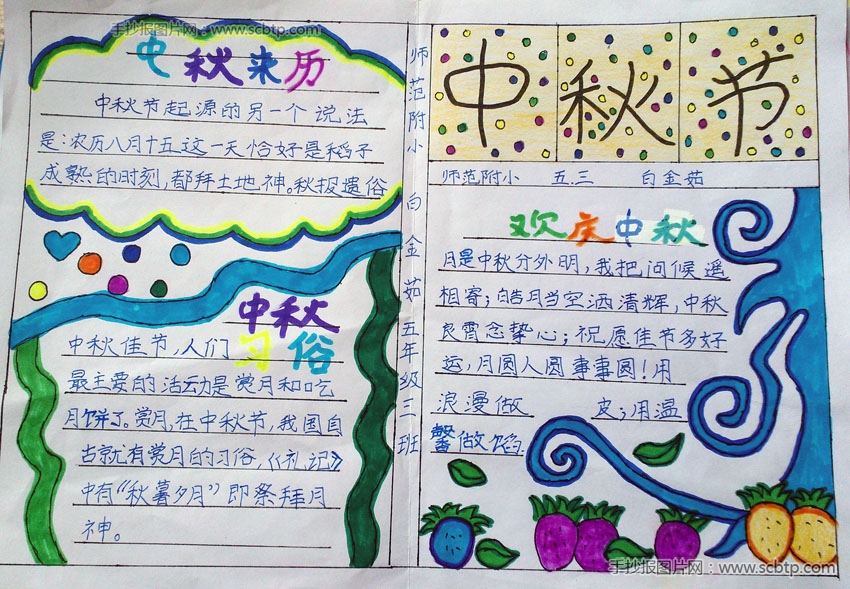 手抄报图片网：www.scbtp.com
中秋来历
中秋节起源的另一个说法
是：农历八月十五这一天恰好是稻子
成熟的时刻，都拜土地神。秋报遗俗
中秋
习俗
中秋佳节，人们
最主要的活动是赏月和吃
月饼了。赏月，在中秋节，我国自
古就有赏月的习俗，《礼记》
中有“秋暮夕月”即祭拜月
神。
师范附小 白金茹 五年级三班
中秋节
师范附小 五.三 白金茹
欢庆中秋
月是中秋分外明，我把问候遥
相寄；皓月当空洒清辉，中秋
良霄念挚心；祝愿佳节多好
运，月圆人圆事事圆！用
浪漫做 皮；用温
馨做馅.
手抄报图片网：www.scbtp.com